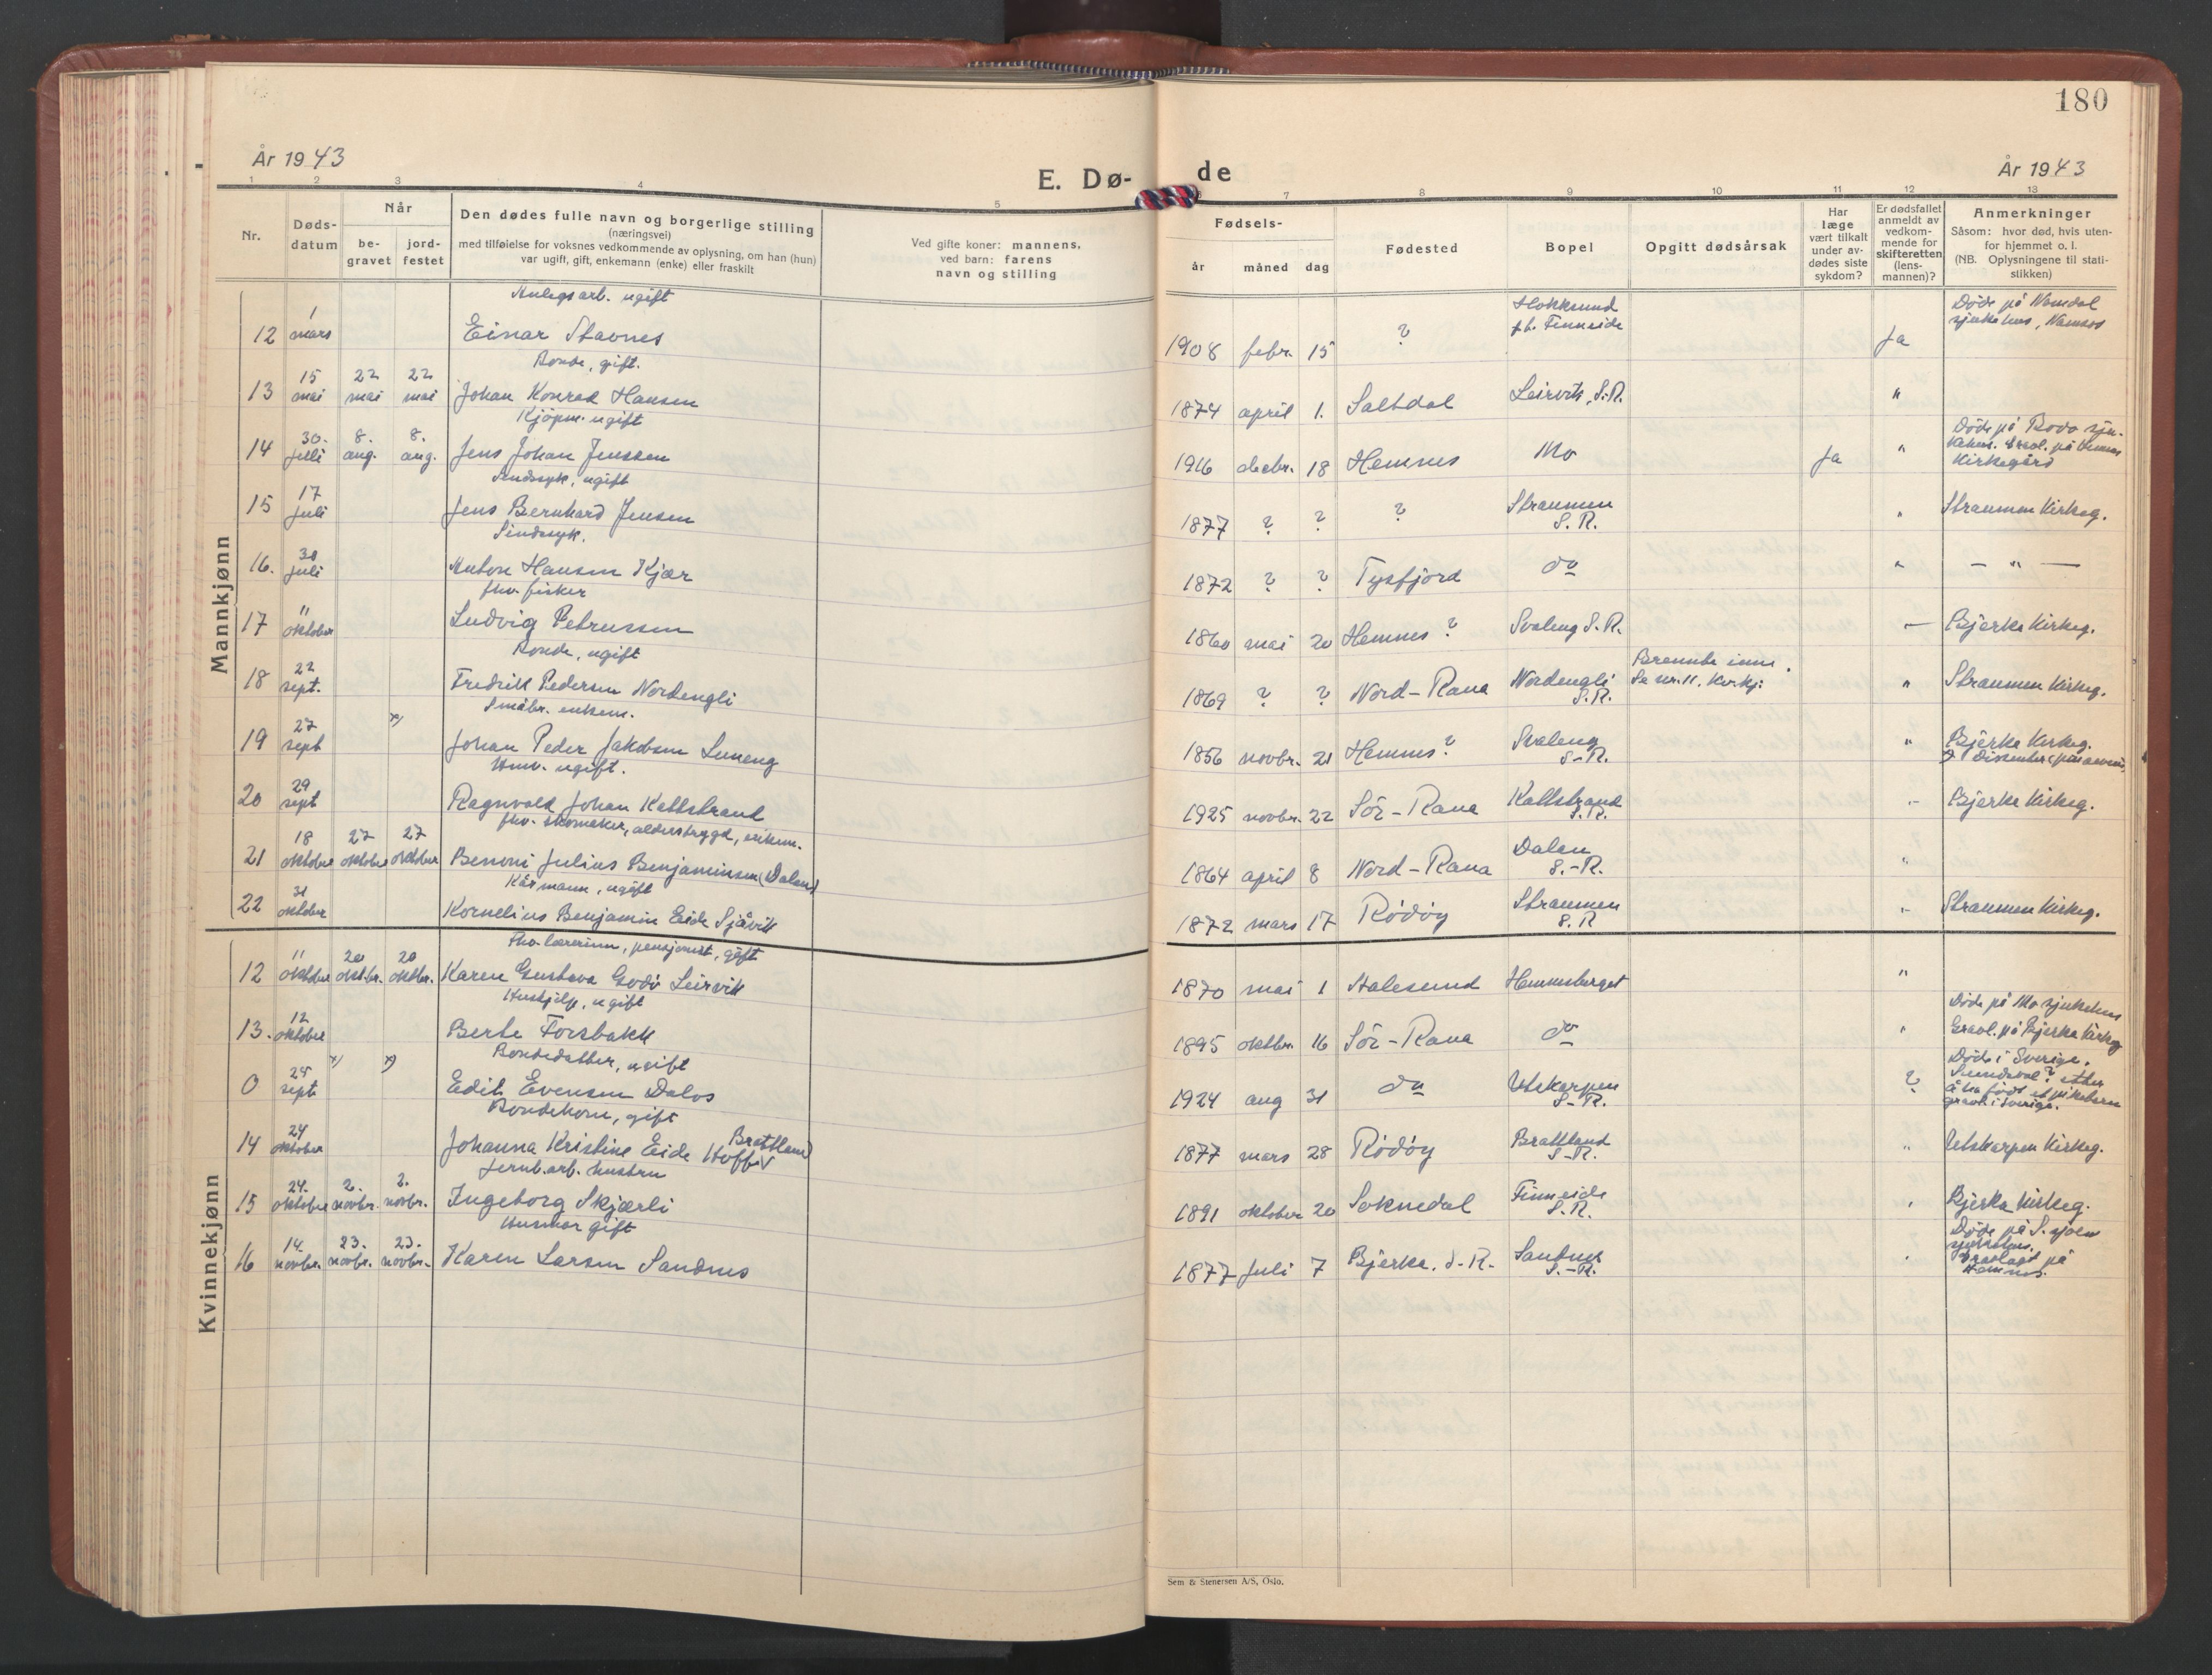 180
År 1943
E. Dø-
de
År 1943
1 2 3 4 5 7 8 9 10 11 12 13
Nr.
Døds-
datum
Når
be-
gravet
jord-
festet
Den dødes fulle navn og borgerlige stilling
(næringsvei)
med tilføielse for voksnes vedkommende av oplysning, om han (hun)
var ugift, gift, enkemann (enke) eller fraskilt
Ved gifte koner: mannens,
ved barn: farens
navn og stilling
Fødsels-
år måned dag
Fødested
Bopel
Opgitt dødsårsak
Har
læge
vært tilkalt
under av-
dødes siste
sykdom?
Er dødsfallet
anmeldt av
vedkom-
mende for
skifteretten
(lens-
mannen)?
Anmerkninger
Såsom: hvor død, hvis uten-
for hjemmet o. l.
(NB. Oplysningene til stati-
stikken)
Mannkjønn
Anlegsarb. ugift
12 1 mars Einar Stavnes 1908 febr. 15 ? Hokksund
p.t. Finneide Ja Døde på Namdal
sjukehus, Namsos
Bonde, gift.
13 15 mai 22 mai 22 mai Johan Konrad Hansen 1874 april 1. Saltdal Leirvik, S.R. "
Kjøpm. ugift
14 30. juli 8. aug. 8. aug. Jens Johan Jenssen 1916 decbr. 18 Hemnes Mo Ja " Døde på Bodø sju-
kehus. Gravl. på Hemnes
Kirkegård
Sindssyk, ugift
15 17 juli Jens Bernhard Jensen 1877 ? ? ? Straumen
S. R. " Straumen Kirkeg.
Sindssyk.
16. 30 juli Anton Hansen Kjær 1872 ? ? Tysfjord do " — " —
fhv. fisker
17 11 oktober Ludvig Petrussen 1860 mai 20 Hemnes ? Svaleng S.R. — Bjerka Kirkeg.
Bonde, ugift
18 22 sept. Fredrik Pedersen Nordengli 1869 ? ? Nord-Rana Nordengli
S.R. Brannte inne.
Se nr. 11. kvkj: " Straumen Kirkeg.
Småbr. enkem.
19 27 sept x) Johan Peder Jakobsen Luneng 1856 novbr. 21 Hemnes ? Svaleng
S-R. " Bjerka Kirkeg.
x) Dissenter
Ungv. ugift.
20 29 sept Ragnvald Johan Kattstrand 1925 novbr. 22 Sör-Rana Kattstrand
S.R. " Bjerka Kirkeg.
fhv. skomaker, alderstrygd, enkem.
21 18 oktober 27 oktober 27 oktober Benoni Julius Benjaminsen (Dalen) 1864 april 8 Nord-Rana Dalen
S.-R. "
Kårmann, ugift
22 31 oktober Kornelius Benjamin Eide Sjåvik 1872 mars 17 Rödöy Straumen
S.R " Straumen Kirkeg.
Kvinnekjønn
Fhv. lærerinne, pensjonist, gift
12 11 oktober 20 oktbr. 20 oktbr. Karen Gustava Godö Leirvik 1870 mai 1 Aalesund Hemnesberget "
Hushjelp, ugift
13. 12 oktober Berte Forsbakk 1895 oktbr. 16 Sör-Rana do " Döde på Mo sjukehus
Gravl. på Bjerka Kirkeg
Bondedatter, ugift
0 25 sept x) x) Edit Evensen Dalos 1924 aug 31 do Utskarpen
S-R. ? Døde i Sverige.
Sundsval? etter
å ha födt et pikebarn
gravl. i Sverige.
Bondekone, gift
14 24 oktober Johanna Kristine Eide Hoff Brattland 1877 mars 28 Rödöy Brattland
S-R. " Utskarpen Kirkeg.
Jernb.arb. hustru
15 24. oktober 2. novbr. 2. novbr. Ingeborg Skjærli 1891 oktober 20 Soknedal Finneide
S.R. " Bjerka Kirkeg.
Husmor gift
16 14. novbr. 23. novbr. 23. novbr. Karen Larsen Sandnes 1877 juli 7 Bjerka, S-R. Sandnes
S.-R. " Døde på S. sjoen
sjukehus.
Gravlagt på
Hemnes.
Sem & Stenersen A/S, Oslo.